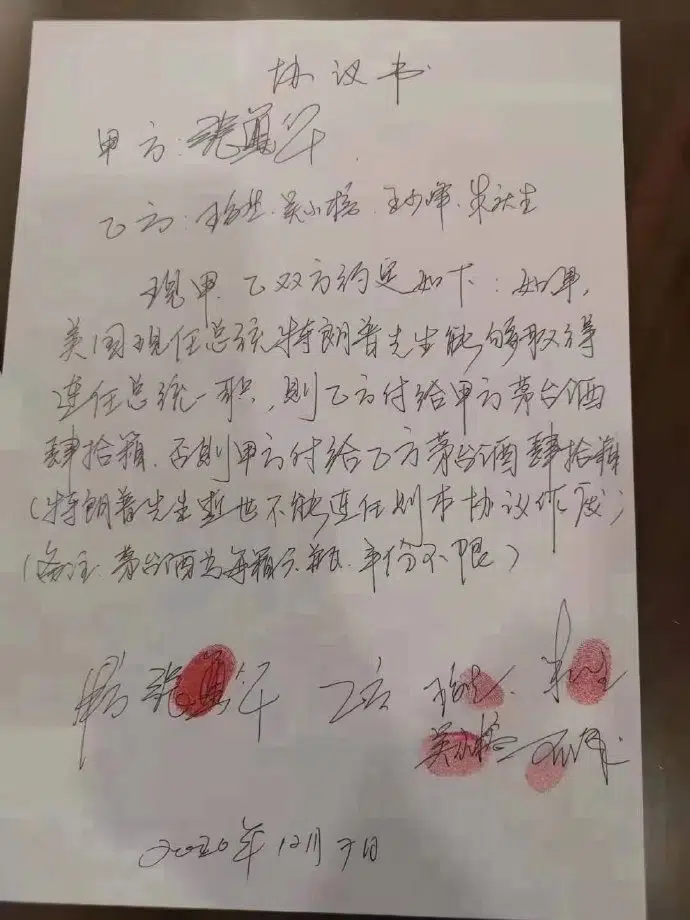 协议书
甲方:张
乙方: 吴小榕.王少峰.朱秋生
现甲.乙双方约定如下:如果,
美国现任总统特朗普先生能够取得
连任总统一职,则乙方付给甲方茅台酒
肆拾箱.否则甲方付给乙方茅台酒肆拾箱
(特朗普先生逝世不能连任则本协议作废)
(备注:茅台酒为每箱六瓶.年份不限)
甲方 张 乙方
吴小榕
2020年12月7日